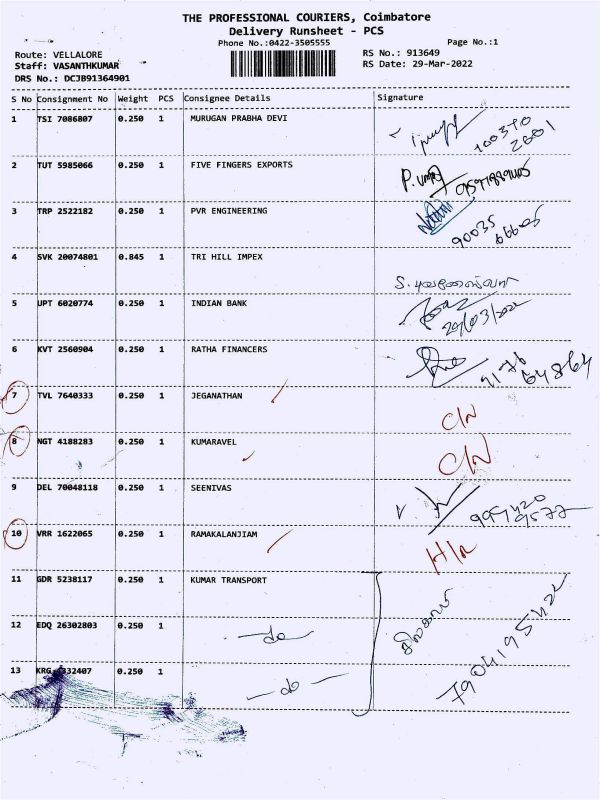 THE PROFESSIONAL COURIERS, Coimbatore
Delivery Runsheet - PCS
Phone No.:0422-3505555
Page No.:1
Route: VELLALORE
RS No.: 913649
Staff: VASANTHKUMAR
RS Date: 29-Mar-2022
DRS No.: DCJB91364901
S No Consignment No Weight PCS Consignee Details Signature
1 TSI 7086807 0.250 1 MURUGAN PRABHA DEVI
2 TUT 5985066 0.250 1 FIVE FINGERS EXPORTS
3 TRP 2522182 0.250 1 PVR ENGINEERING
90035
4 SVK 20074801 0.845 1 TRI HILL IMPEX
5 UPT 6020774 0.250 1 INDIAN BANK
29/03/2022
6 KVT 2560904 0.250 1 RATHA FINANCERS
9176
64864
7 TVL 7640333 0.250 1 JEGANATHAN
C/N
8 NGT 4188283 0.250 1 KUMARAVEL
C/N
9 DEL 70048118 0.250 1 SEENIVAS
10 VRR 1622065 0.250 1 RAMAKALANJIAM
11 GDR 5238117 0.250 1 KUMAR TRANSPORT
12 EDQ 26302803 0.250 1 -do-
13 KRG 0.250 1 -do-